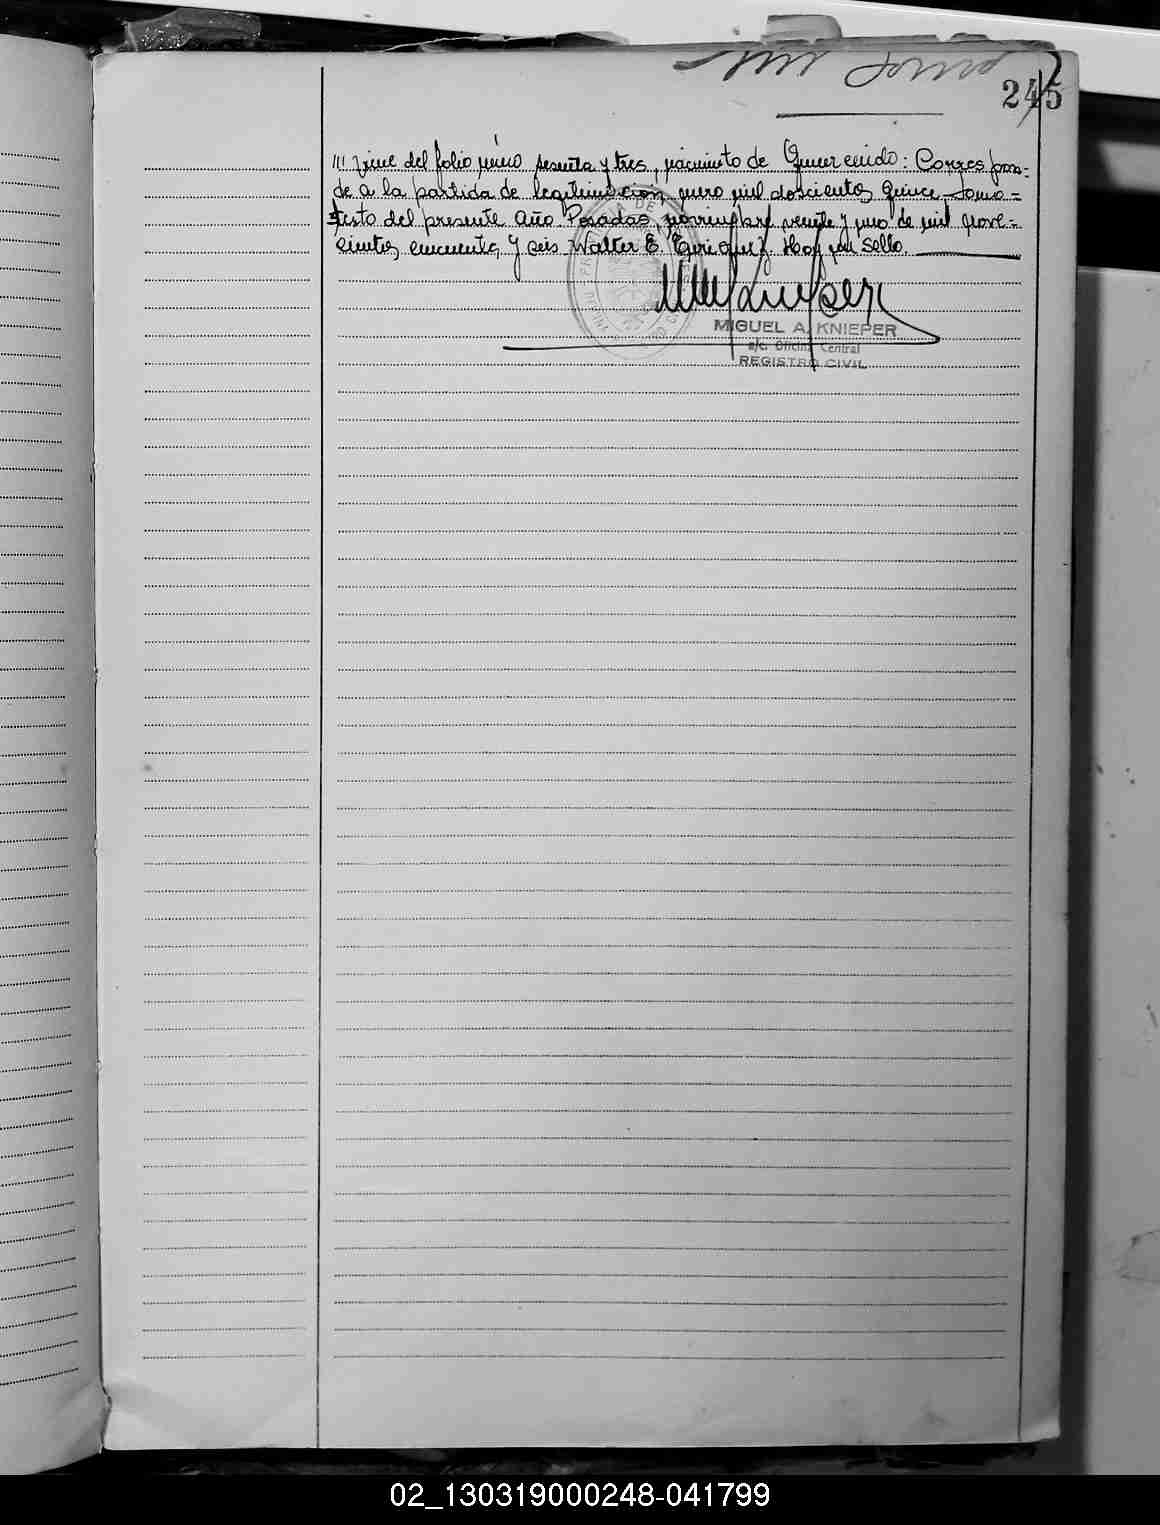 245
/// Viene del folio, número sesenta y tres, nacimiento de Gumercindo: Correspon=
de a la partida de legitimacion, número mil doscientos quince, tomo=
sexto del presente año Posadas, noviembre veinte y uno de mil nove=
cientos cincuenta y seis. Walter E. Enriquez. Hay un sello.
MIGUEL A. KNIEPER
a/c. Oficina Central
REGISTRO CIVIL
02_130319000248-041799